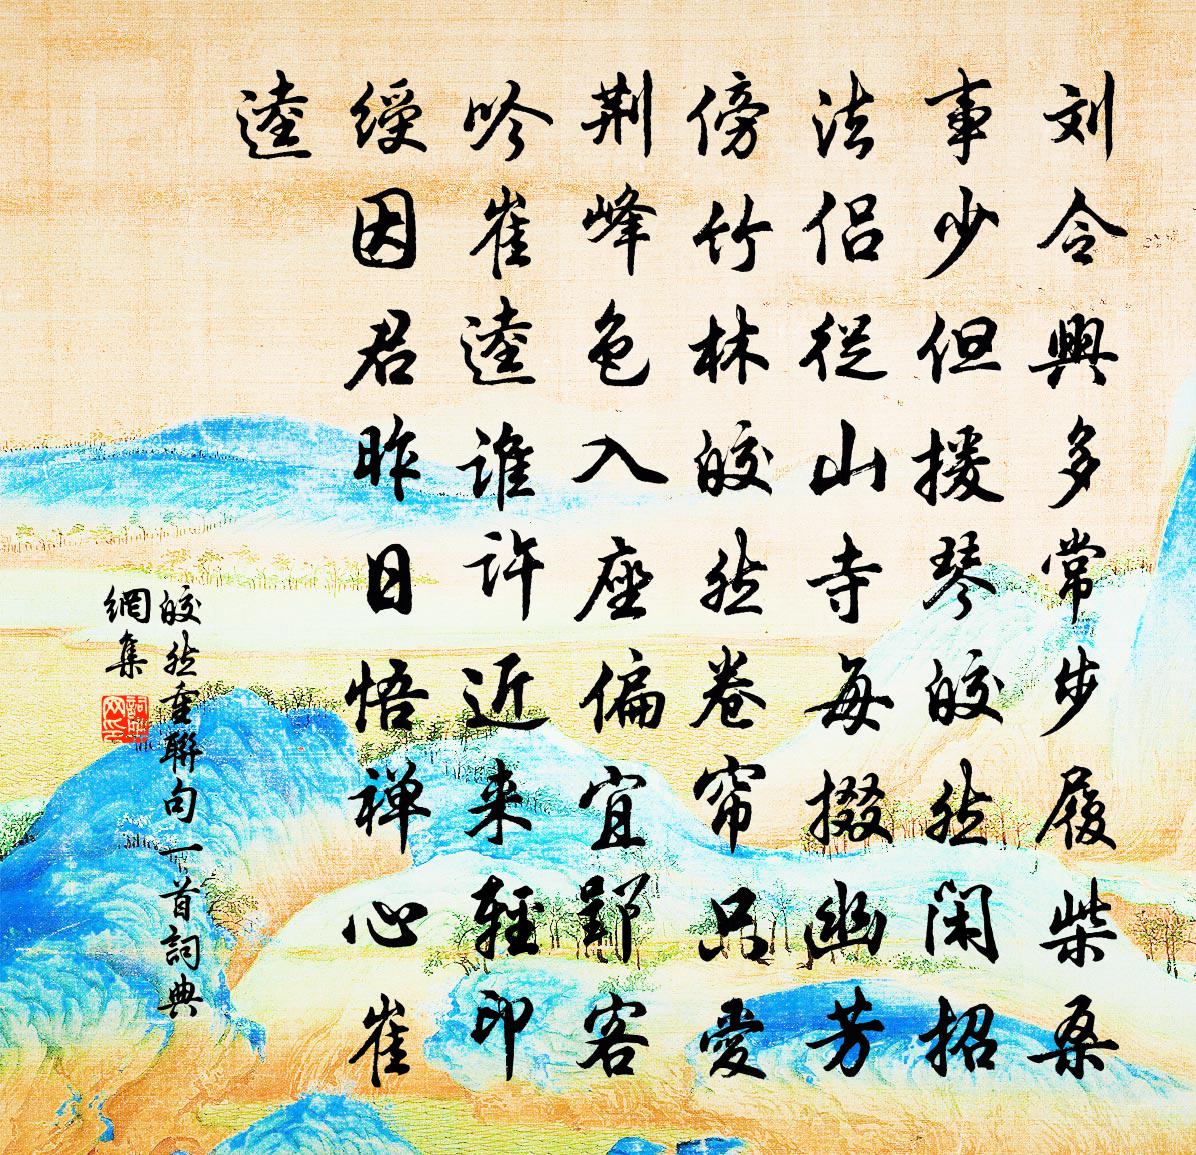 刘令興多常步履柴桑
事少但援琴皎然閑招
法侣從山寺每掇幽芳
傍竹林皎然卷帘只愛
荆峰色入座偏宜郢客
吟崔逵谁许近来輕印
綬因君昨日悟禅心崔
逵
皎然重聯句一首詞典
網集